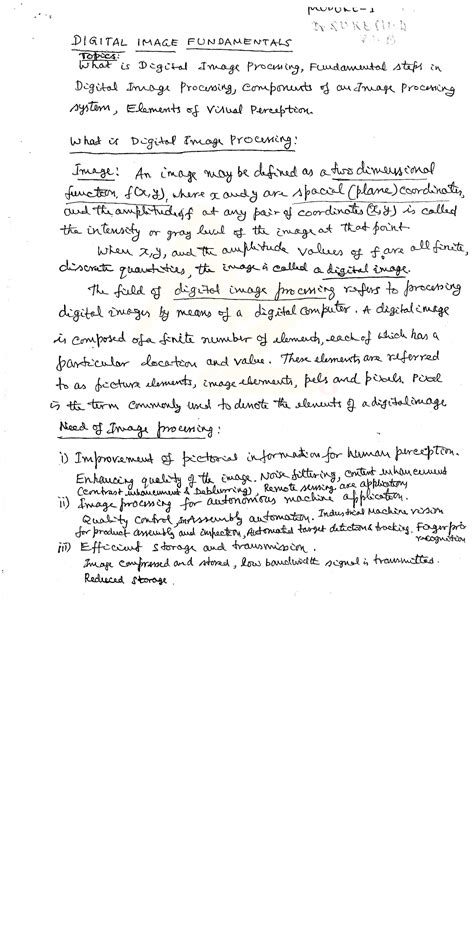 MODULE-1
DIGITAL IMAGE FUNDAMENTALS
Topics:
What is Digital Image Processing, Fundamental steps in
Digital Image Processing, Components of an Image Processing
system, Elements of Visual Perception.
What is Digital Image Processing:
Image: An image may be defined as a two dimensional
function, f(x,y), where x and y are spacial (plane) coordinates,
and the amplitude of f at any pair of coordinates (x,y) is called
the intensity or gray level of the image at that point
When x,y, and the amplitude values of f are all finite,
discrete quantities, the image is called a digital image.
The field of digital image processing refers to processing
digital images by means of a digital computer. A digital image
is composed of a finite number of elements, each of which has a
particular location and value. These elements are referred
to as picture elements, image elements, pels and pixels. Pixel
is the term commonly used to denote the elements of a digital image
Need of Image processing:
i) Improvement of pictorial information for human perception.
Enhancing quality of the image. Noise filtering, Content enhancement
(Contrast enhancement & Deblurring) Remote sensing are application
ii) Image processing for autonomous machine application.
Quality Control in Assembly automation. Industrial Machine vision
for product assembly and inspection, Automated target detection & tracking, Finger prts
recognition
iii) Efficient Storage and transmission.
Image compressed and stored, low bandwidth signal is transmitted.
Reduced Storage.